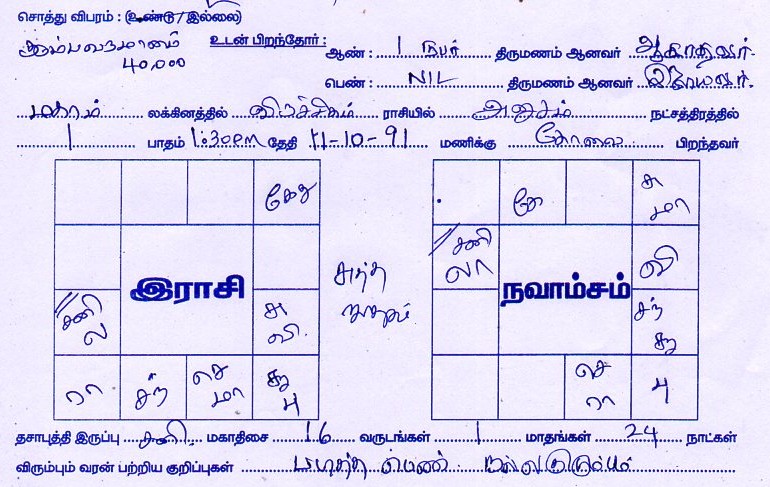 சொத்து விபரம் : (உண்டு / இல்லை)
40,000 உடன் பிறந்தோர் : ஆண் : 1 நபர் திருமணம் ஆனவர் ஆகாதவர்
பெண் : NIL திருமணம் ஆனவர்
மகரம் லக்கினத்தில் விருச்சிகம் ராசியில் அனுசம் நட்சத்திரத்தில்
1 பாதம் 1:30PM தேதி 11-10-91 மணிக்கு கோவை பிறந்தவர்
கேது
சனி
ல
இராசி
சு
வி
ரா
சந்
செ
மா
சூ
பு
சுத்த
ஜாதகம்
கே
சு
மா
சனி
லா
நவாம்சம்
வி
சந்
சூ
செ
ரா
பு
தசாபுத்தி இருப்பு சனி மகாதிசை 16 வருடங்கள் 1 மாதங்கள் 24 நாட்கள்
விரும்பும் வரன் பற்றிய குறிப்புகள் படித்த பெண் நல்ல குடும்பம்